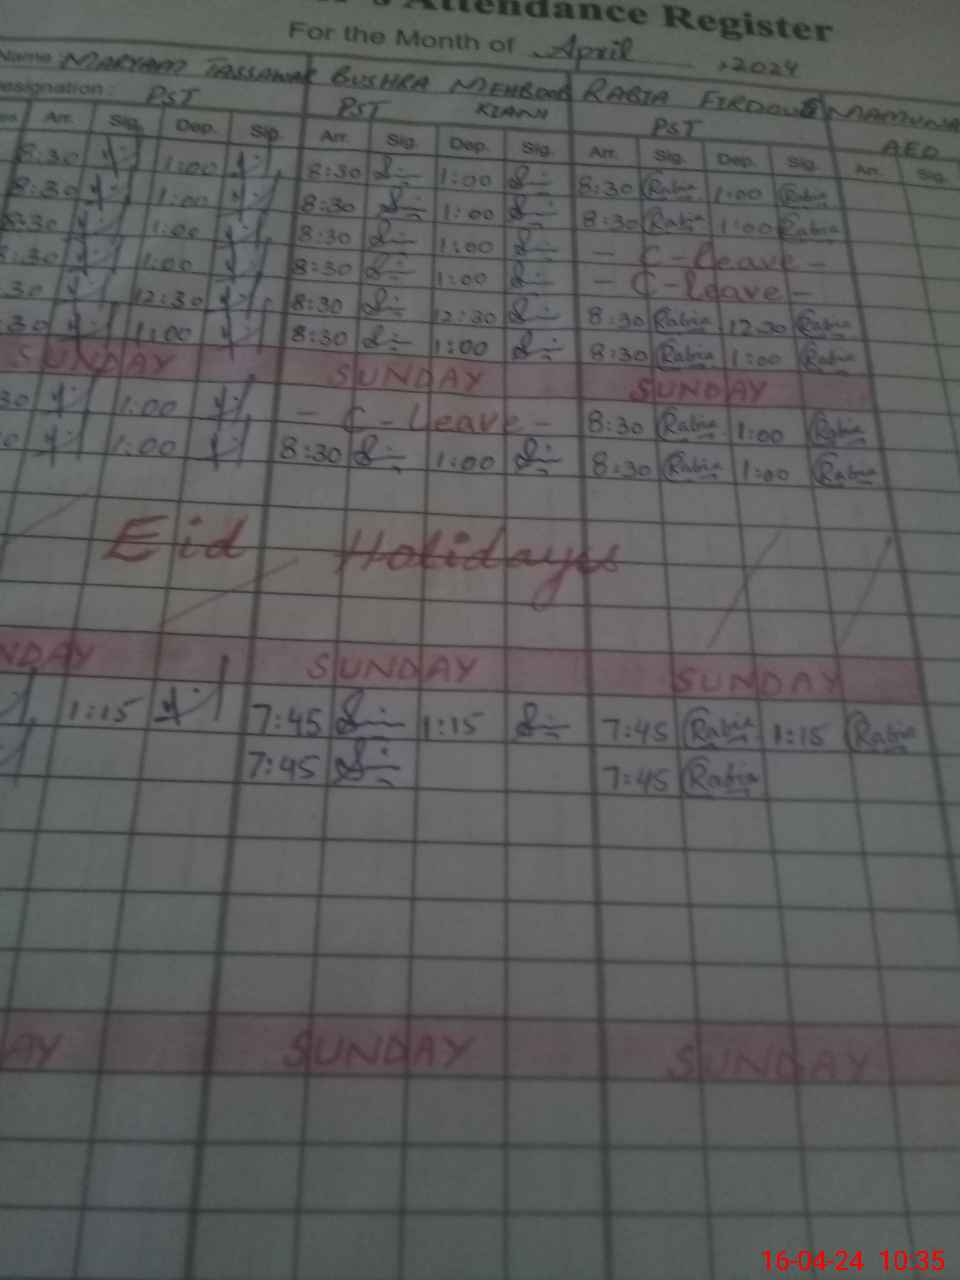 's Attendance Register
For the Month of April, 2024
Name MARYAM TASSAWAR BUSHRA MEHBOOB KIANI RABIA FIRDOUS MAMUNA
esignation: PST PST PST AEO
Arr. Sig. Dep. Sig. Arr. Sig. Dep. Sig. Arr. Sig. Dep. Sig. Arr. Sig.
8:30 1:00 8:30 1:00 8:30 Rabia 1:00 Rabia
8:30 1:00 8:30 1:00 8:30 Rabia 1:00 Rabia
8:30 1:00 8:30 1:00 - C-leave -
8:30 1:00 8:30 1:00 - C-leave -
:30 12:30 8:30 12:30 8:30 Rabia 12:30 Rabia
:30 1:00 8:30 1:00 8:30 Rabia 1:00 Rabia
SUNDAY SUNDAY SUNDAY
30 1:00 - C-Leave - 8:30 Rabia 1:00 Rabia
0 1:00 8:30 1:00 8:30 Rabia 1:00 Rabia
Eid Holidays
NDAY SUNDAY SUNDAY
1:15 7:45 1:15 7:45 Rabia 1:15 Rabia
7:45 7:45 Rabia
AY SUNDAY SUNDAY
16-04-24 10:35